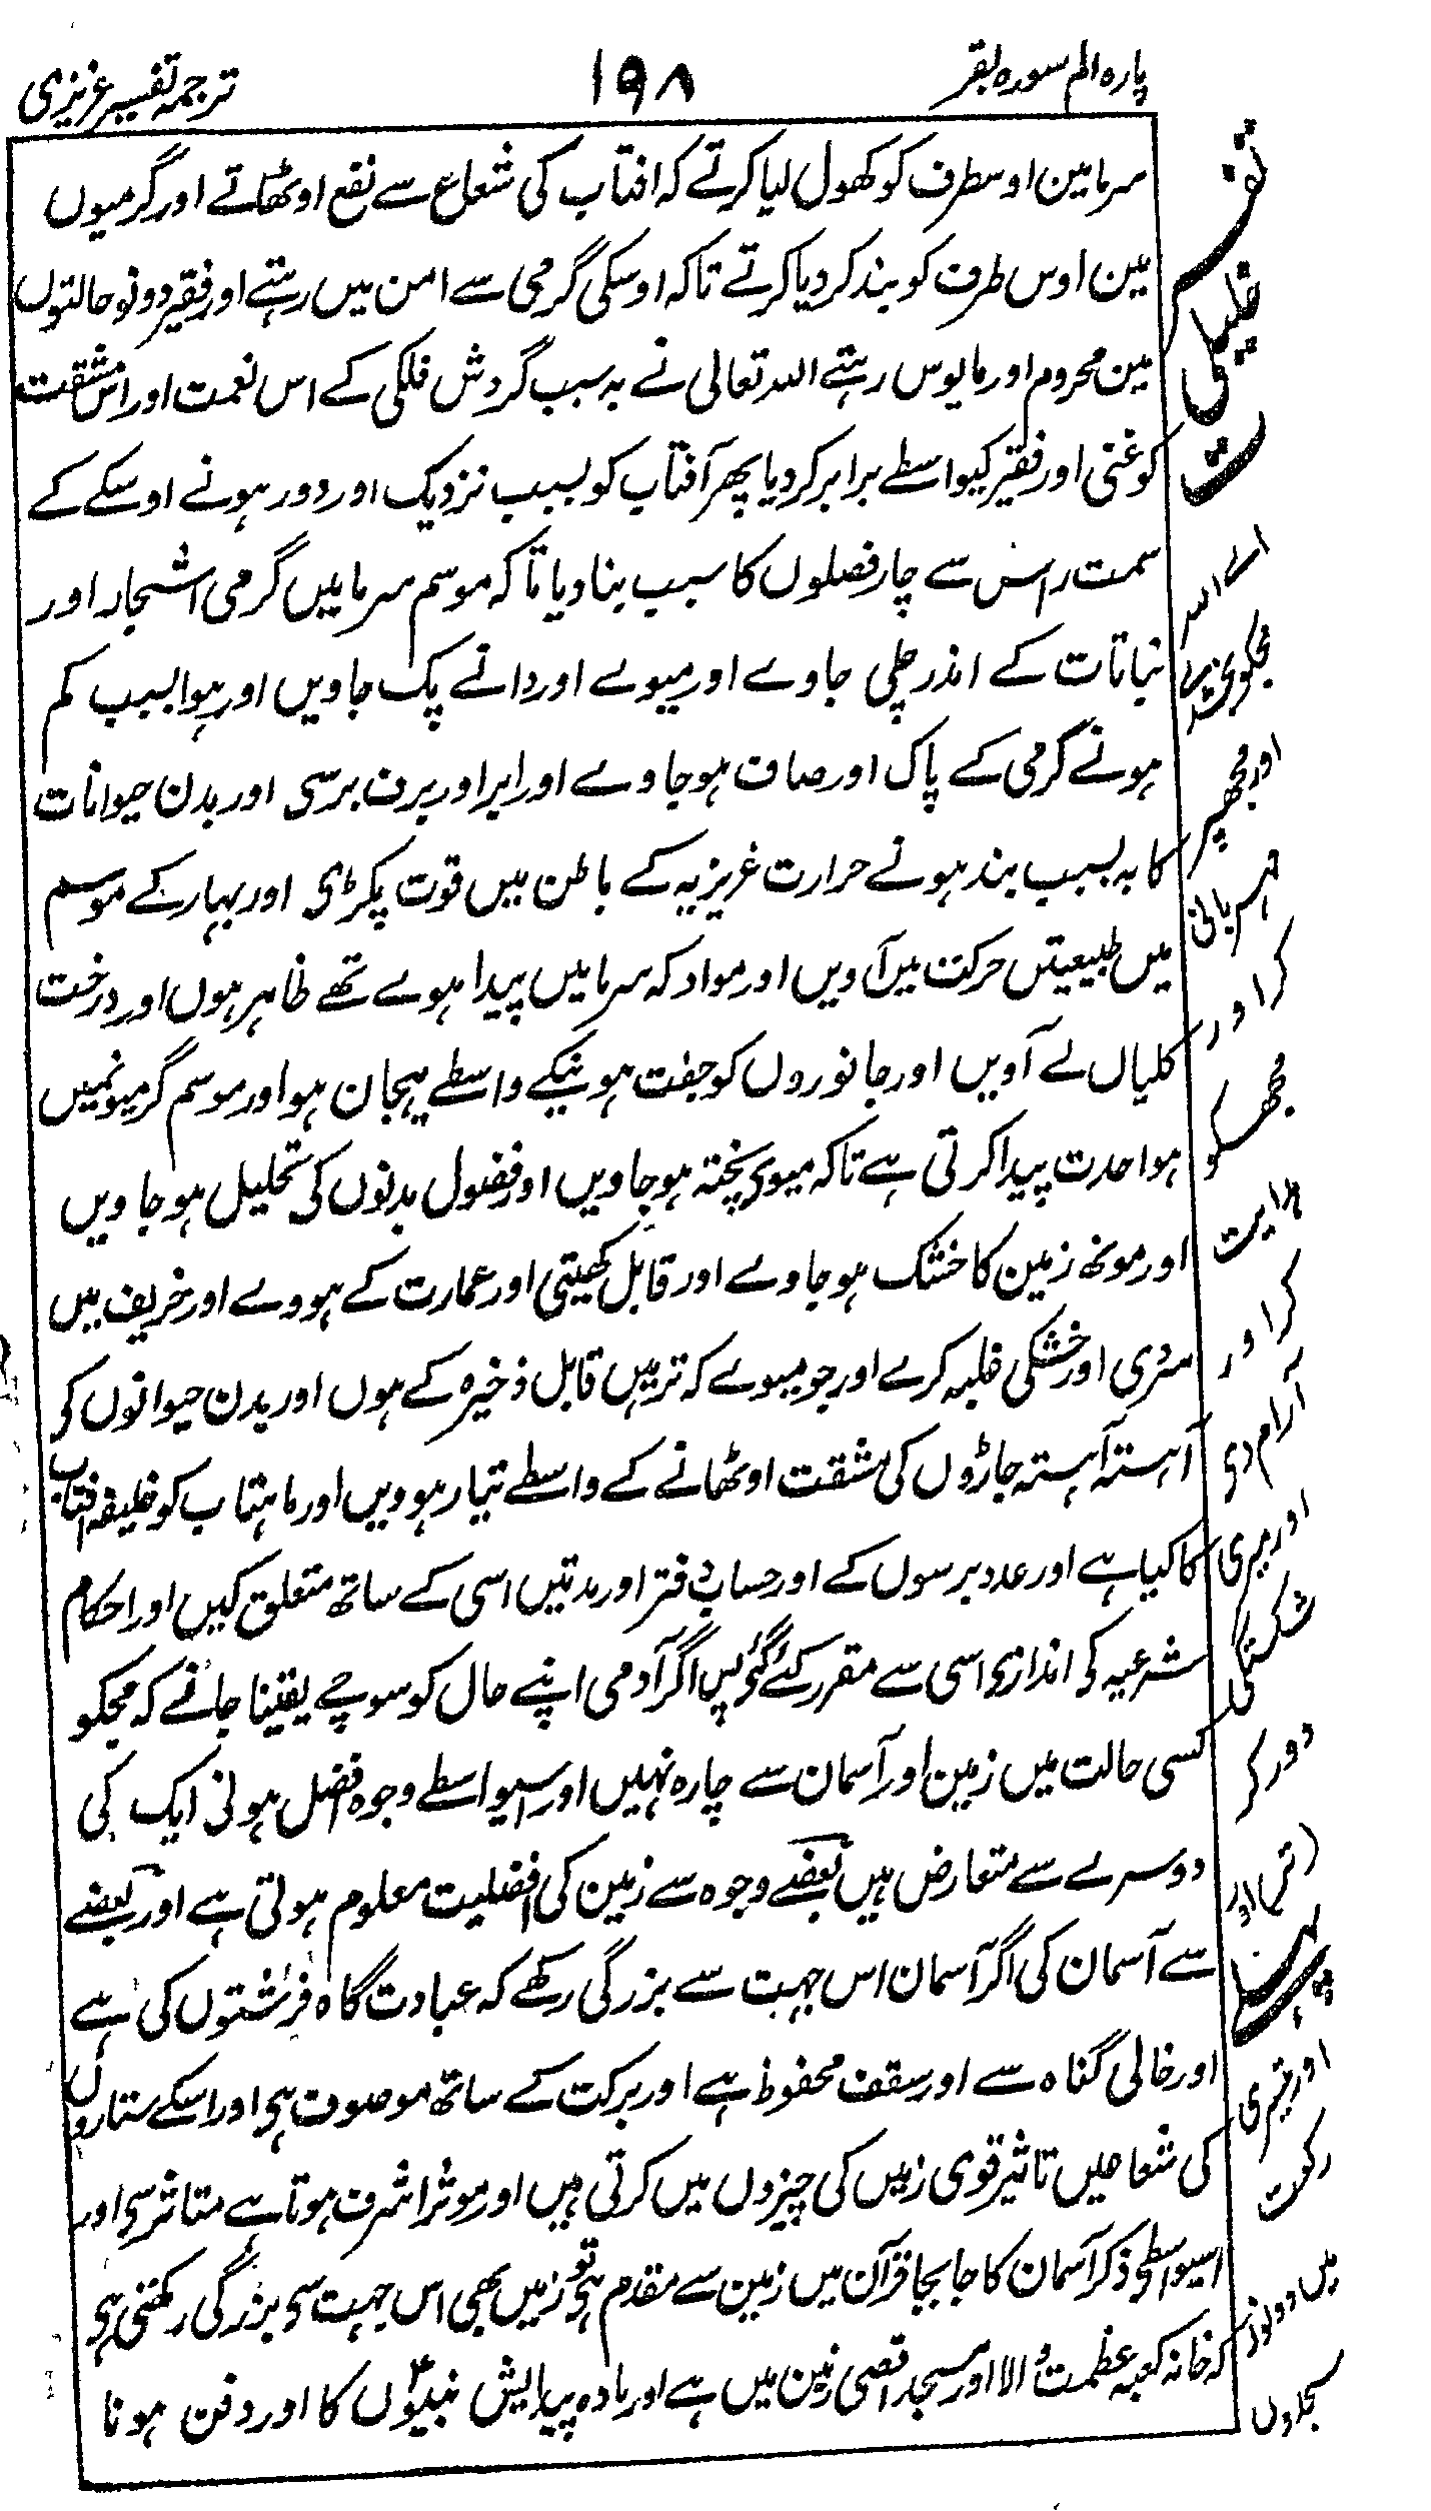 پارہ الم سورہ بقر
۱۹۸
ترجمہ تفسیر عزیزی
سرما مین اوسطرف کو کھول لیا کرتے کہ افتاب کی شعاع سے نفع اوٹھاتے اور گرمیوں
مین اوس طرف کو بند کر دیا کرتے تاکہ اوسکی گرمی سے امن میں رہتے اور فقیر دونو حالتوں
مین محروم اور مایوس رہتے اللہ تعالی نے بہ سبب گردش فلکی کے اس نعمت اور اس مشقت
کو غنی اور فقیر کیواسطے برابر کر دیا پھر آفتاب کو بسبب نزدیک اور دور ہونے اوسکے کے
سمت راس سے چار فصلوں کا سبب بنا دیا تاکہ موسم سرما میں گرمی اشجار اور
نباتات کے اندر چلی جاوے اور میوے اور دانے پک جاویں اور ہوا بسبب کم
ہونے گرمی کے پاک اور صاف ہو جاوے اور ابر اور برف برسی اور بدن حیوانات
کا بہ بسبب بند ہونے حرارت غریزیہ کے باطن میں قوت پکڑی اور بہار کے موسم
میں طبیعیتں حرکت میں آویں اور مواد کہ سرما میں پیدا ہوے تھے ظاہر ہوں اور درخت
کلیاں لے آویں اور جانوروں کو جفت ہونیکے واسطے ہیجان ہو اور موسم گرمیونمیں
ہوا حدت پیدا کرتی ہے تاکہ میوی پختہ ہو جاویں اور فضول بدنوں کی تحلیل ہو جاویں
اور مونھ زمین کا خشک ہو جاوے اور قابل کھیتی اور عمارت کے ہووے اور خریف میں
سردی اور خشکی غلبہ کرے اور جو میوے کہ تر ہیں قابل ذخیرہ کے ہوں اور بدن حیوانوں کی
آہستہ آہستہ جاڑوں کی مشقت اوٹھانے کے واسطے تیار ہوویں اور ماہتاب کو خلیفہ افتاب
کا کیا ہے اور عدد برسوں کے اور حساب دفتر اور مدتیں اسی کے ساتھ متعلق کیں اور احکام
شرعیہ کی اندازی اسی سے مقرر کئے گئی پس اگر آدمی اپنے حال کو سوچے یقینا جانے کہ مجکو
کسی حالت میں زمین اور آسمان سے چارہ نہیں اور اسیواسطے وجوہ افضل ہونی ایک کی
دوسرے سے متعارض ہیں بعضے وجوہ سے زمین کی افضلیت معلوم ہوتی ہے اور بعضے
سے آسمان کی اگر آسمان اس جہت سے بزرگی رکھے کہ عبادت گاہ فرشتوں کی ہے
اور خالی گناہ سے اور سقف محفوظ ہے اور برکت کے ساتھ موصوف ہی اور اسکے ستاروں
کی شعاعیں تاثیر قوی زمیں کی چیزوں میں کرتی ہیں اور موثر اشرف ہوتا ہے متاثر سی اور
اسیواسطی ذکر آسمان کا جا بجا قرآن میں زمین سے مقدم ہی تو زمیں بھی اس جہت سی بزرگی رکھتی ہی
کہ خانہ کعبہ عظمت والا اور مسجد اقصی زمین میں ہے اور مادہ پیدایش نبیوں کا اور دفن ہونا
اے اللہ
اور مجھ پر
مہربانی
کر اور
مجھ کو
ہدایت
کر اور
آرام دی
اور میری
شکستگی
دور کر
اور تیری
رکوت
میں دونوں
سجدوں